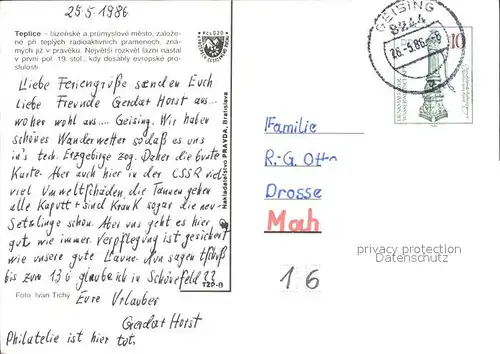 25.5.1986
Teplice - lázeňské a průmyslové město, založe-
né při teplých radioaktivních pramenech, zná-
mých již v pravěku. Největší rozkvět lázní nastal
v první pol. 19. stol., kdy dosáhly evropské pro-
slulosti
Liebe Feriengrüße senden Euch
liebe Freunde Gerdat Horst aus...
woher wohl aus.... Geising. Wir haben
schönes Wanderwetter sodaß es uns
in's tech. Erzgebirge zog. Daher die bunte
Karte. Aber auch hier in der CSSR viel
viel Umweltschäden, die Tannen geben
alle Kaputt + sind Krank sogar die neu-
Setzlinge schon. Aber uns geht es hier
gut wie immer. Verpflegung ist gesichert
wie unsere gute Laune. Nun sagen
bis zum 13.6 glaube ich in Schönefeld ??
Eure Urlauber
Gerdat Horst
Philatelie ist hier tot.
Foto: Ivan Tichý
Nakladatelstvo PRAVDA, Bratislava
TZP-8
GEISING
8244
26.-5.86.-8
10
Familie
R.-G. Otto
Drosse
Mah
16
privacy protection
Datenschutz